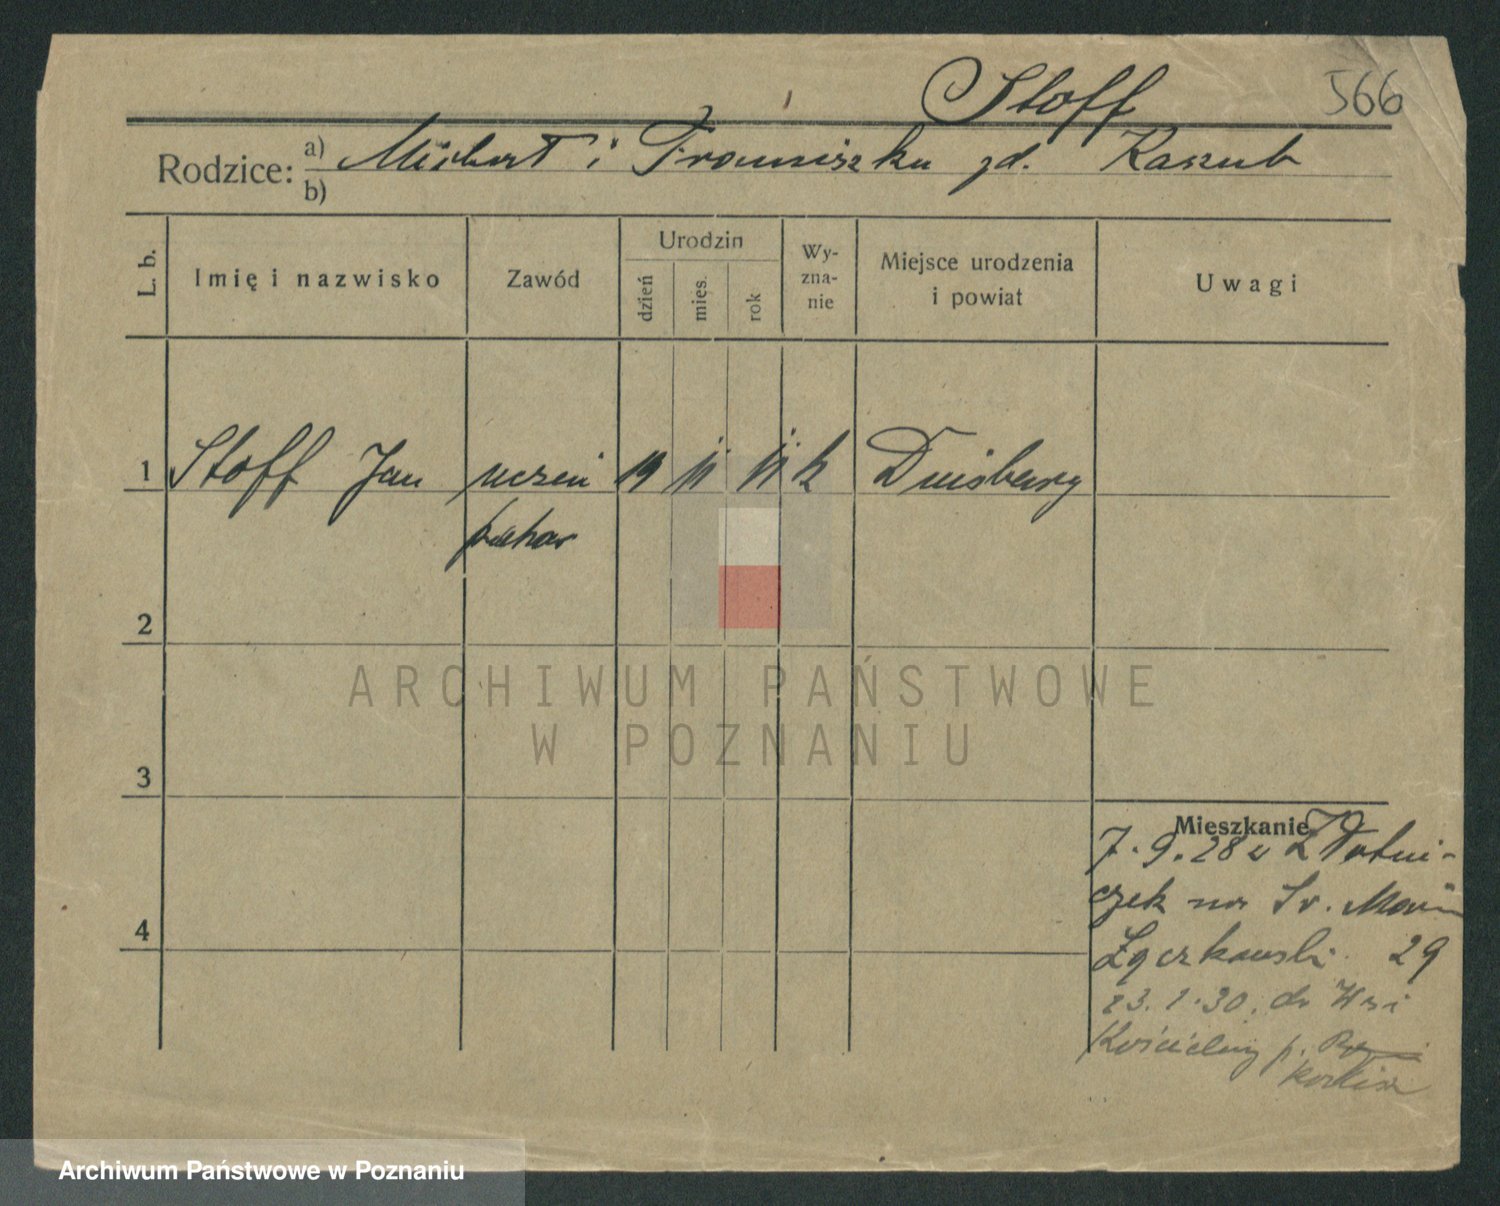 Stoff
566
Rodzice: a) Norbert i Franciszka zd. Kaszub
b)
L. b.
Imię i nazwisko
Zawód
Urodzin
dzień
mies.
rok
Wy-
zna-
nie
Miejsce urodzenia
i powiat
Uwagi
1 Stoff Jan uczeń 19 11 11 k Duisburg
piekar
2
ARCHIWUM PAŃSTWOWE
W POZNANIU
3
Mieszkanie
7.9.28 z
czek na Św. Marcin
29
4
23.1.30. do Wsi
Kościelnej p.
Archiwum Państwowe w Poznaniu